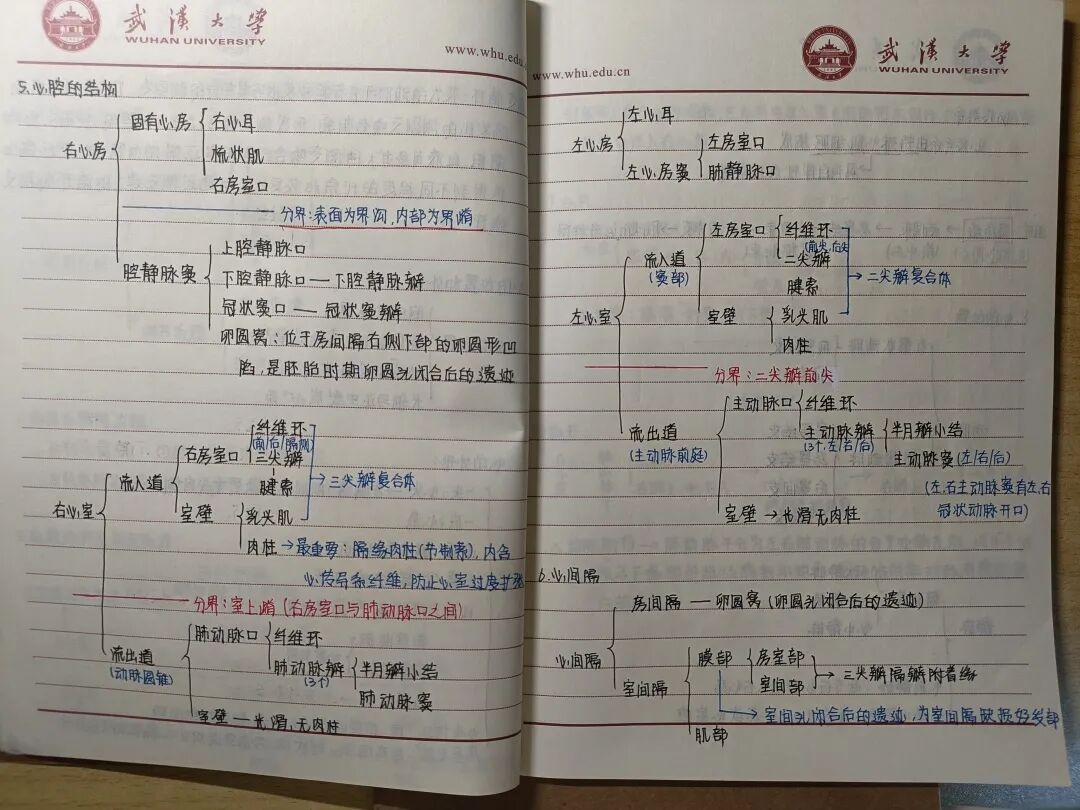 武漢大學
WUHAN UNIVERSITY
www.whu.edu.cn
5.心腔的结构
右心房
固有心房
右心耳
梳状肌
右房室口
分界:表面为界沟,内部为界嵴
腔静脉窦
上腔静脉口
下腔静脉口—下腔静脉瓣
冠状窦口—冠状窦瓣
卵圆窝:位于房间隔右侧下部的卵圆形凹
陷,是胚胎时期卵圆孔闭合后的遗迹
右心室
流入道
右房室口
纤维环
(前/后/隔侧)
三尖瓣
腱索
室壁
乳头肌
→三尖瓣复合体
肉柱→最重要:隔缘肉柱(节制索),内含
心传导系纤维,防止心室过度扩张
分界:室上嵴(右房室口与肺动脉口之间)
流出道
(动脉圆锥)
肺动脉口
纤维环
肺动脉瓣
(3个)
半月瓣小结
肺动脉窦
室壁—光滑,无肉柱
www.whu.edu.cn
武漢大學
WUHAN UNIVERSITY
左心房
左心耳
左心房窦
左房室口
肺静脉口
左心室
流入道
(窦部)
左房室口
纤维环
(前尖,后尖)
二尖瓣
腱索
→二尖瓣复合体
室壁
乳头肌
肉柱
分界:二尖瓣前尖
流出道
(主动脉前庭)
主动脉口
纤维环
主动脉瓣
(3个,左/右/后)
半月瓣小结
主动脉窦(左/右/后)
(左、右主动脉窦有左、右
冠状动脉开口)
室壁→光滑无肉柱
6.心间隔
心间隔
房间隔—卵圆窝(卵圆孔闭合后的遗迹)
室间隔
膜部
房室部
室间部
→三尖瓣隔瓣附着缘
→室间孔闭合后的遗迹,为室间隔缺损好发部
肌部